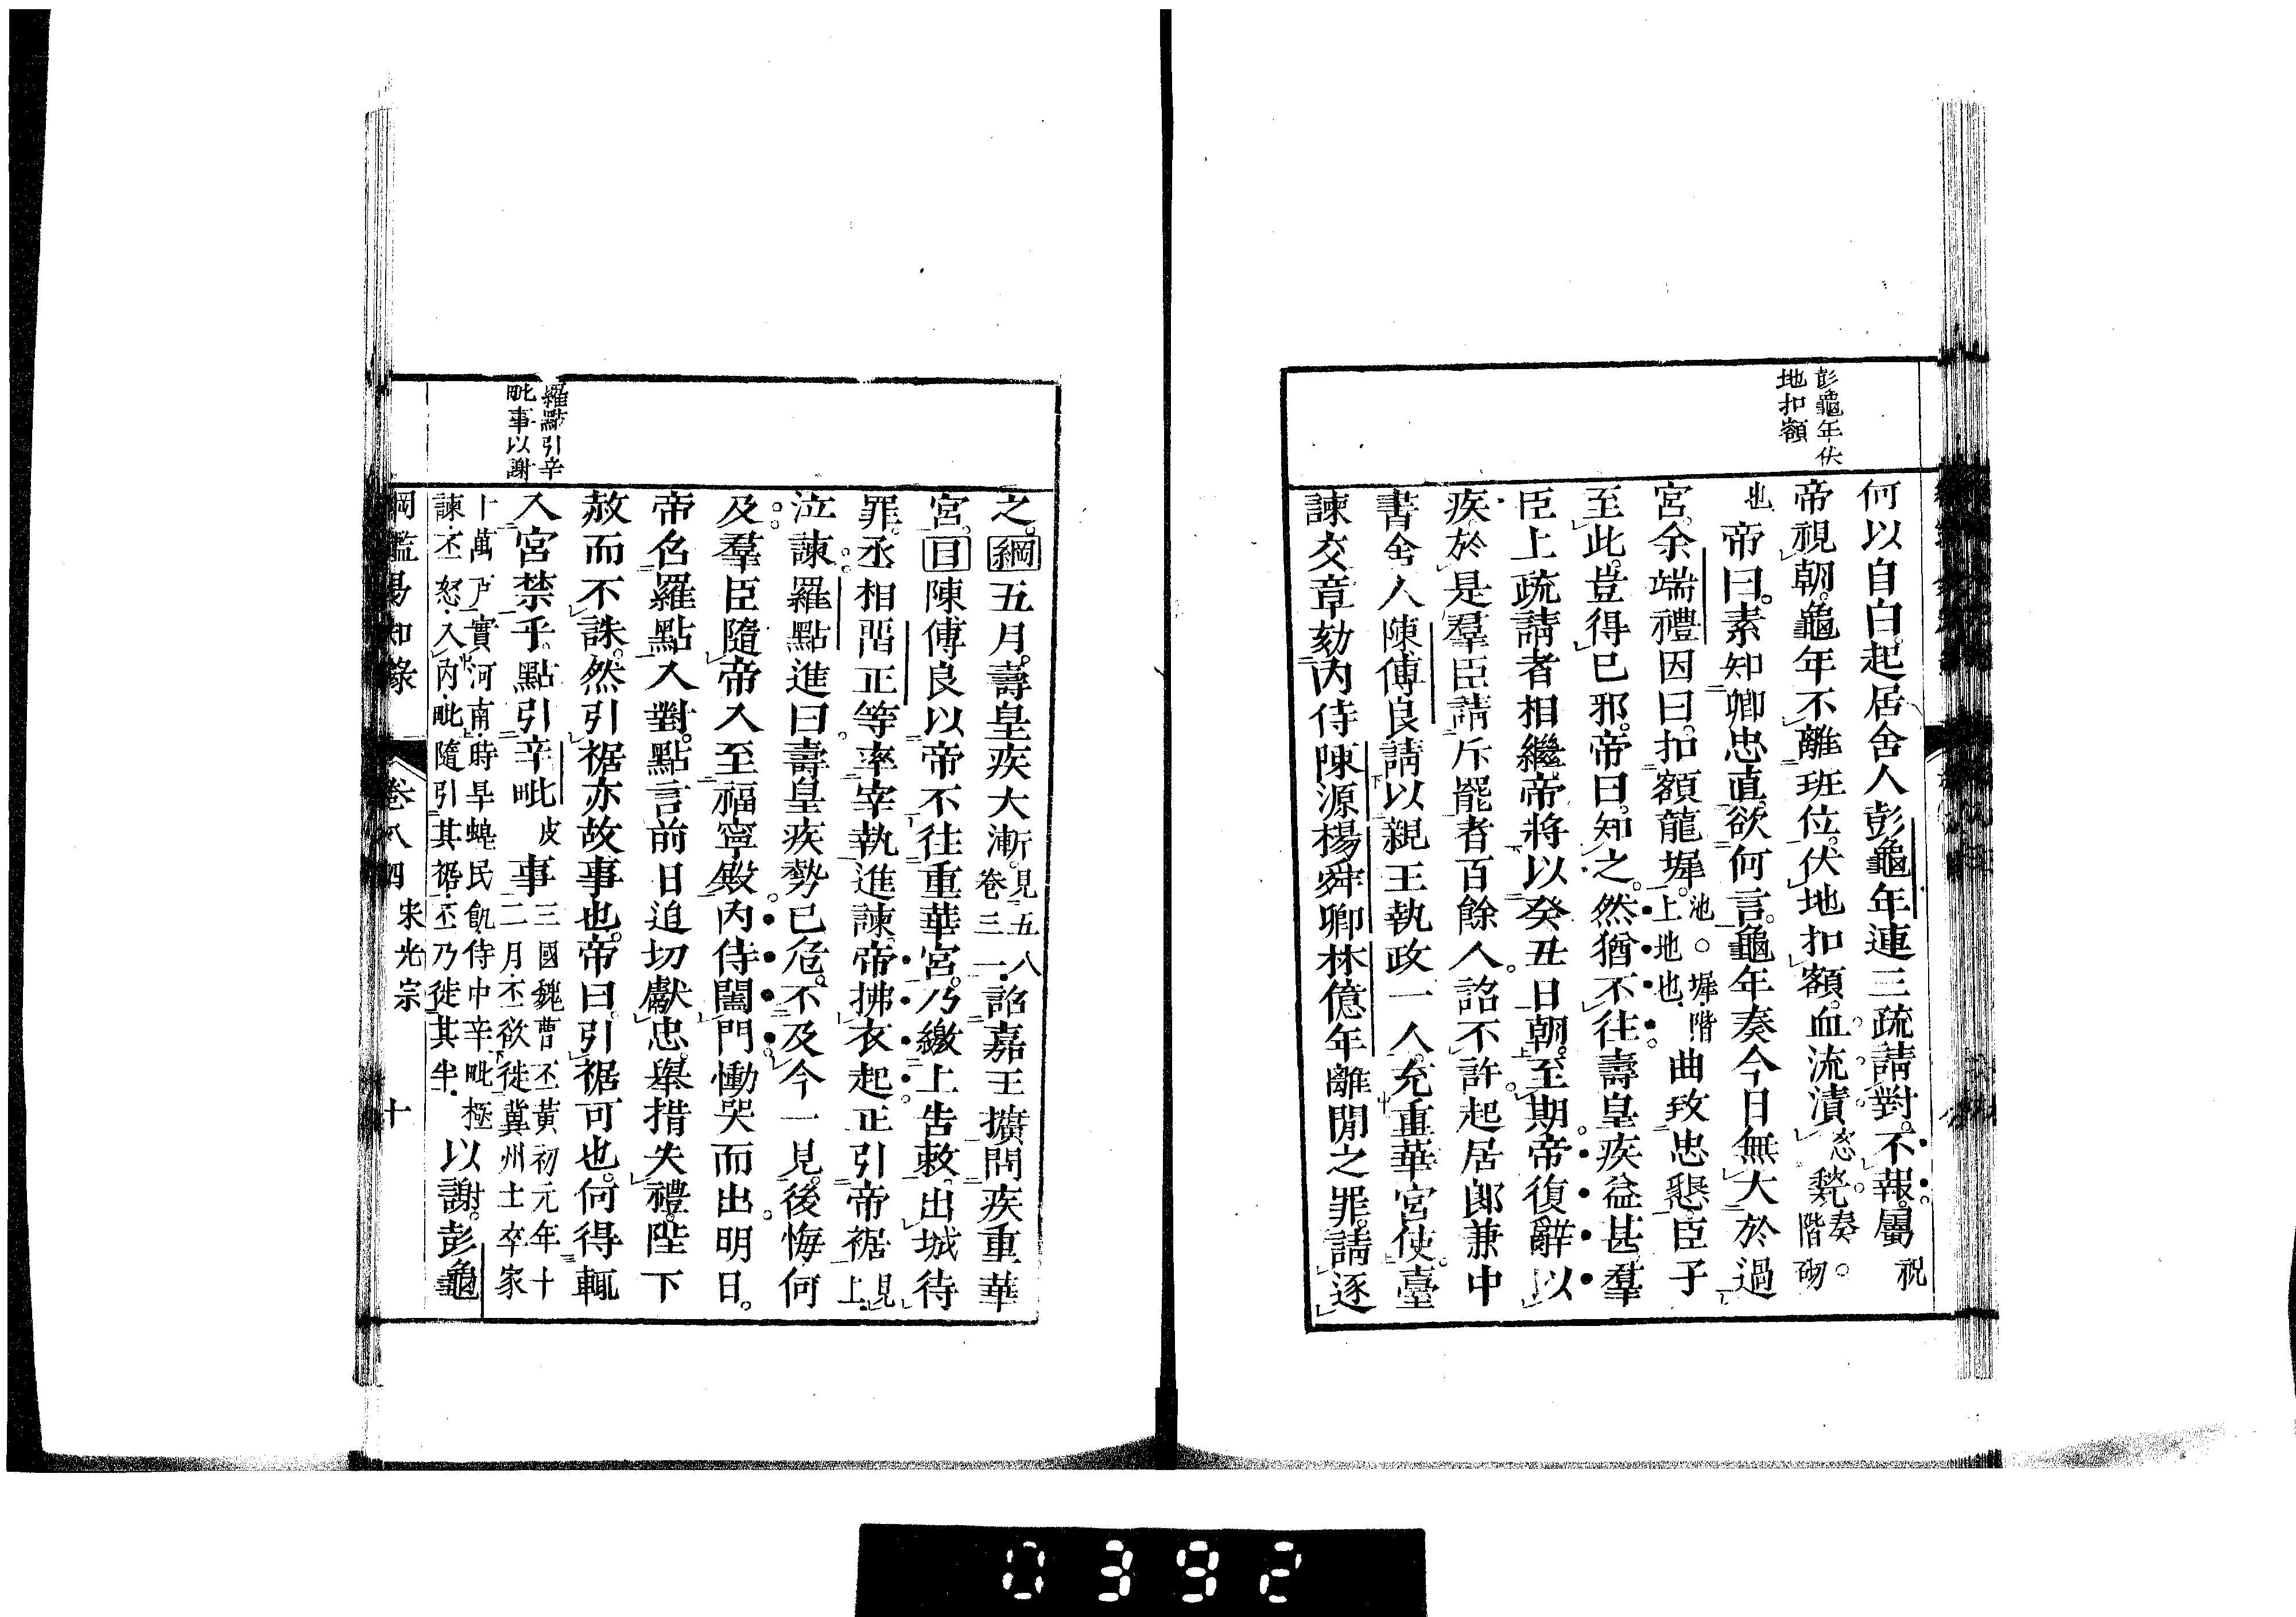 彭龜年伏
地扣額
何以自白。起居舍人彭龜年連三疏請對。不報。屬祝
帝視朝。龜年不離班位。伏地扣額。血流漬恣甃奏。階砌
也帝曰。素知卿忠直。欲何言。龜年奏今日無大於過
宮。余端禮因曰。扣額龍墀。池。墀階上地也曲致忠懇。臣子
至此。豈得已邪。帝曰。知之。然猶不往。壽皇疾益甚。羣
臣上疏請者相繼。帝將以癸丑日朝。至期。帝復辭以
疾。於是羣臣請斥罷者百餘人。詔不許。起居郎兼中
書舍人陳傅良請以親王執政一人。充重華宮使。臺
諫交章劾內侍陳源楊舜卿林億年離閒之罪。請逐
羅點引辛
毗事以謝
之。綱五月。壽皇疾大漸。見五八卷三一詔嘉王擴問疾重華
宮。目陳傅良以帝不往重華宮。乃繳上告敕。出城待
罪。丞相留正等率宰執進諫。帝拂衣起。正引帝裾見上
泣諫。羅點進曰。壽皇疾勢已危。不及今一見。後悔何
及。羣臣隨帝入至福寧殿。內侍闔門慟哭而出。明日。
帝召羅點入對。點言前日迫切獻忠。舉措失禮。陛下
赦而不誅。然引裾亦故事也。帝曰。引裾可也。何得輒
入宮禁乎。點引辛毗皮事三國魏曹丕黃初元年十二月丕欲徙冀州士卒家
十萬戶實河南時旱蝗民飢侍中辛毗極諫丕怒入內毗隨引其裾丕乃徙其半以謝。彭龜
綱鑑易知錄 卷八四 宋光宗 十
0392